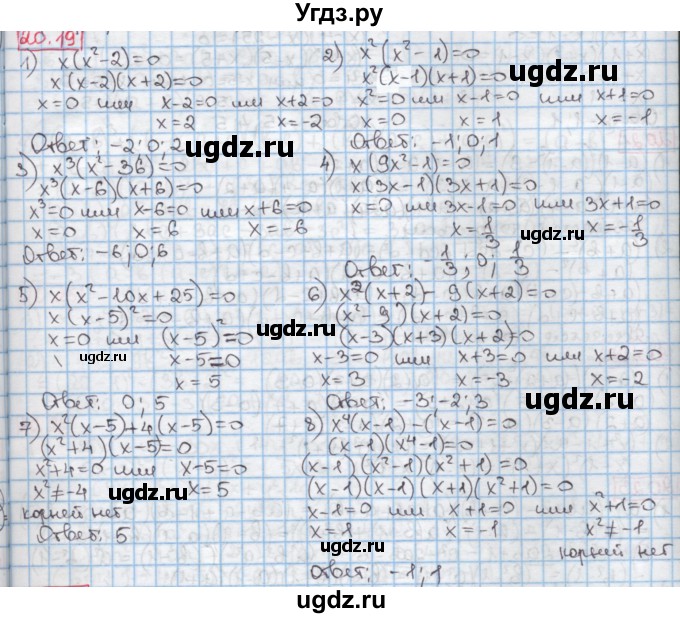 Угдз.ру
20.19
1) x(x²-2)=0
x(x-2)(x+2)=0
x=0 или x-2=0 или x+2=0
x=2 x=-2
Ответ: -2; 0; 2
2) x²(x²-1)=0
x²(x-1)(x+1)=0
x²=0 или x-1=0 или x+1=0
x=0 x=1 x=-1
Ответ: -1; 0; 1
3) x³(x²-36)=0
x³(x-6)(x+6)=0
x³=0 или x-6=0 или x+6=0
x=0 x=6 x=-6
Ответ: -6; 0; 6
4) x(9x²-1)=0
x(3x-1)(3x+1)=0
x=0 или 3x-1=0 или 3x+1=0
x=1/3 x=-1/3
Ответ: -1/3; 0; 1/3
5) x(x²-10x+25)=0
x(x-5)²=0
x=0 или (x-5)²=0
x-5=0
x=5
Ответ: 0; 5
6) x²(x+2)-9(x+2)=0
(x²-9)(x+2)=0
(x-3)(x+3)(x+2)=0
x-3=0 или x+3=0 или x+2=0
x=3 x=-3 x=-2
Ответ: -3; -2; 3
7) x²(x-5)+4(x-5)=0
(x²+4)(x-5)=0
x²+4=0 или x-5=0
x²≠-4 x=5
корней нет
Ответ: 5
8) x⁴(x-1)-(x-1)=0
(x-1)(x⁴-1)=0
(x-1)(x²-1)(x²+1)=0
(x-1)(x-1)(x+1)(x²+1)=0
x-1=0 или x+1=0 или x²+1=0
x=1 x=-1 x²≠-1
корней нет
Ответ: -1; 1
ugdz.ru
ugdz.ru
ugdz.ru
ugdz.ru
ugdz.ru
ugdz.ru
ugdz.ru
ugdz.ru
ugdz.ru